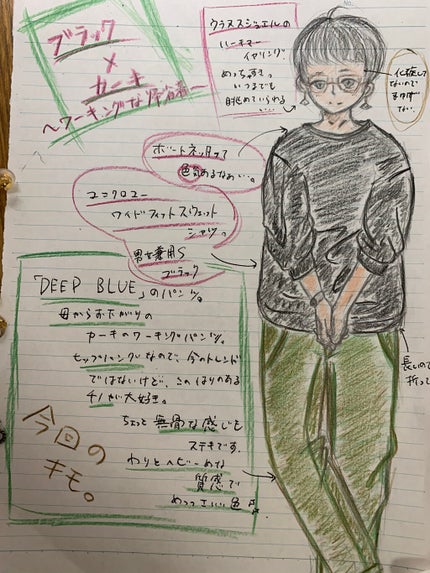 ブラック
×
カーキ
〜ワーキングな
クラスズジュエルの
ハーキマー
イヤリング。
めっちゃすき
いつまでも
眺めていられる
…。
化粧して
ないので
まゆげ
ない。
ボートネックって
色気あるなぁい…。
ユニクロユー
ワイドフィットスウェット
シャツ。
男女兼用S
ブラック
長いので
折って
「DEEP BLUE」のパンツ。
母からおさがりの
カーキのワーキングパンツ。
ヒップハングなので、今のトレンド
ではないけど、このはりのある
チノが大好き。
ちょっと無骨な感じも
ステキです。
わりとヘビーめな
質感で
めっっエいい色
今回の
キモ。
NO.